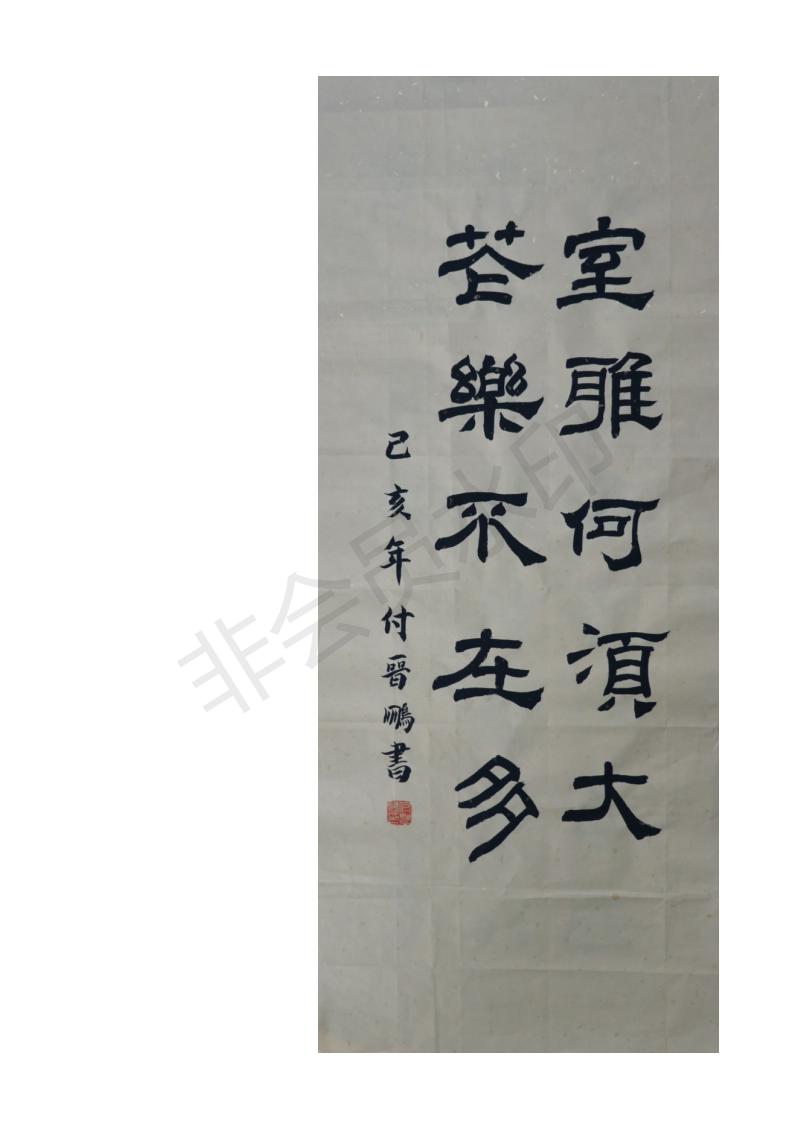 室雅何須大
花樂不在多
己亥年付晉鵬書
非会员水印